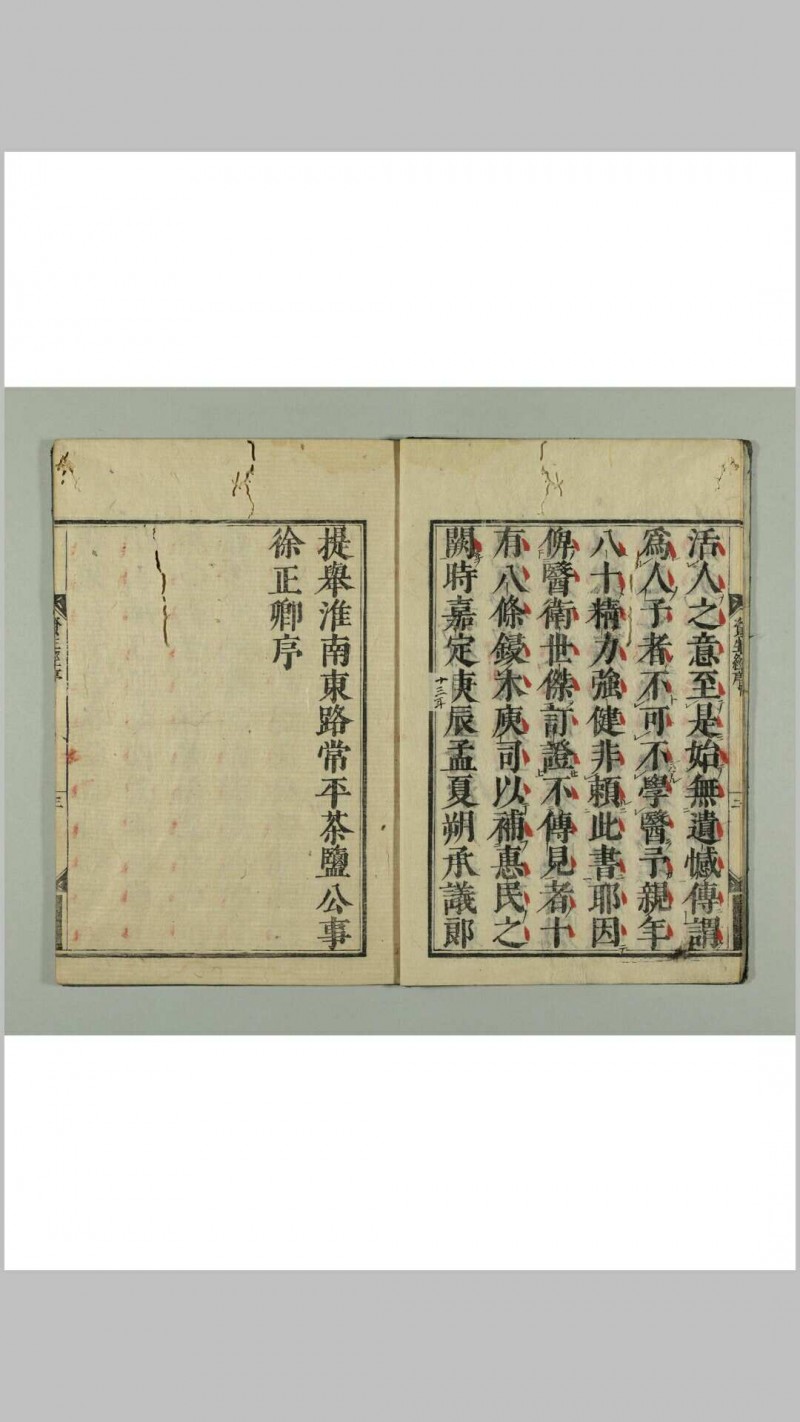 活人之意至是始無遺憾傳謂
為人子者不可不學醫予親年
八十精力強健非賴此書耶因
俾醫衛世傑訂證不傳見者十
有八條鋟木庾司以補惠民之
闕時嘉定庚辰孟夏朔承議郎
十三年
提舉淮南東路常平茶鹽公事
徐正卿序
資生經序
二
三